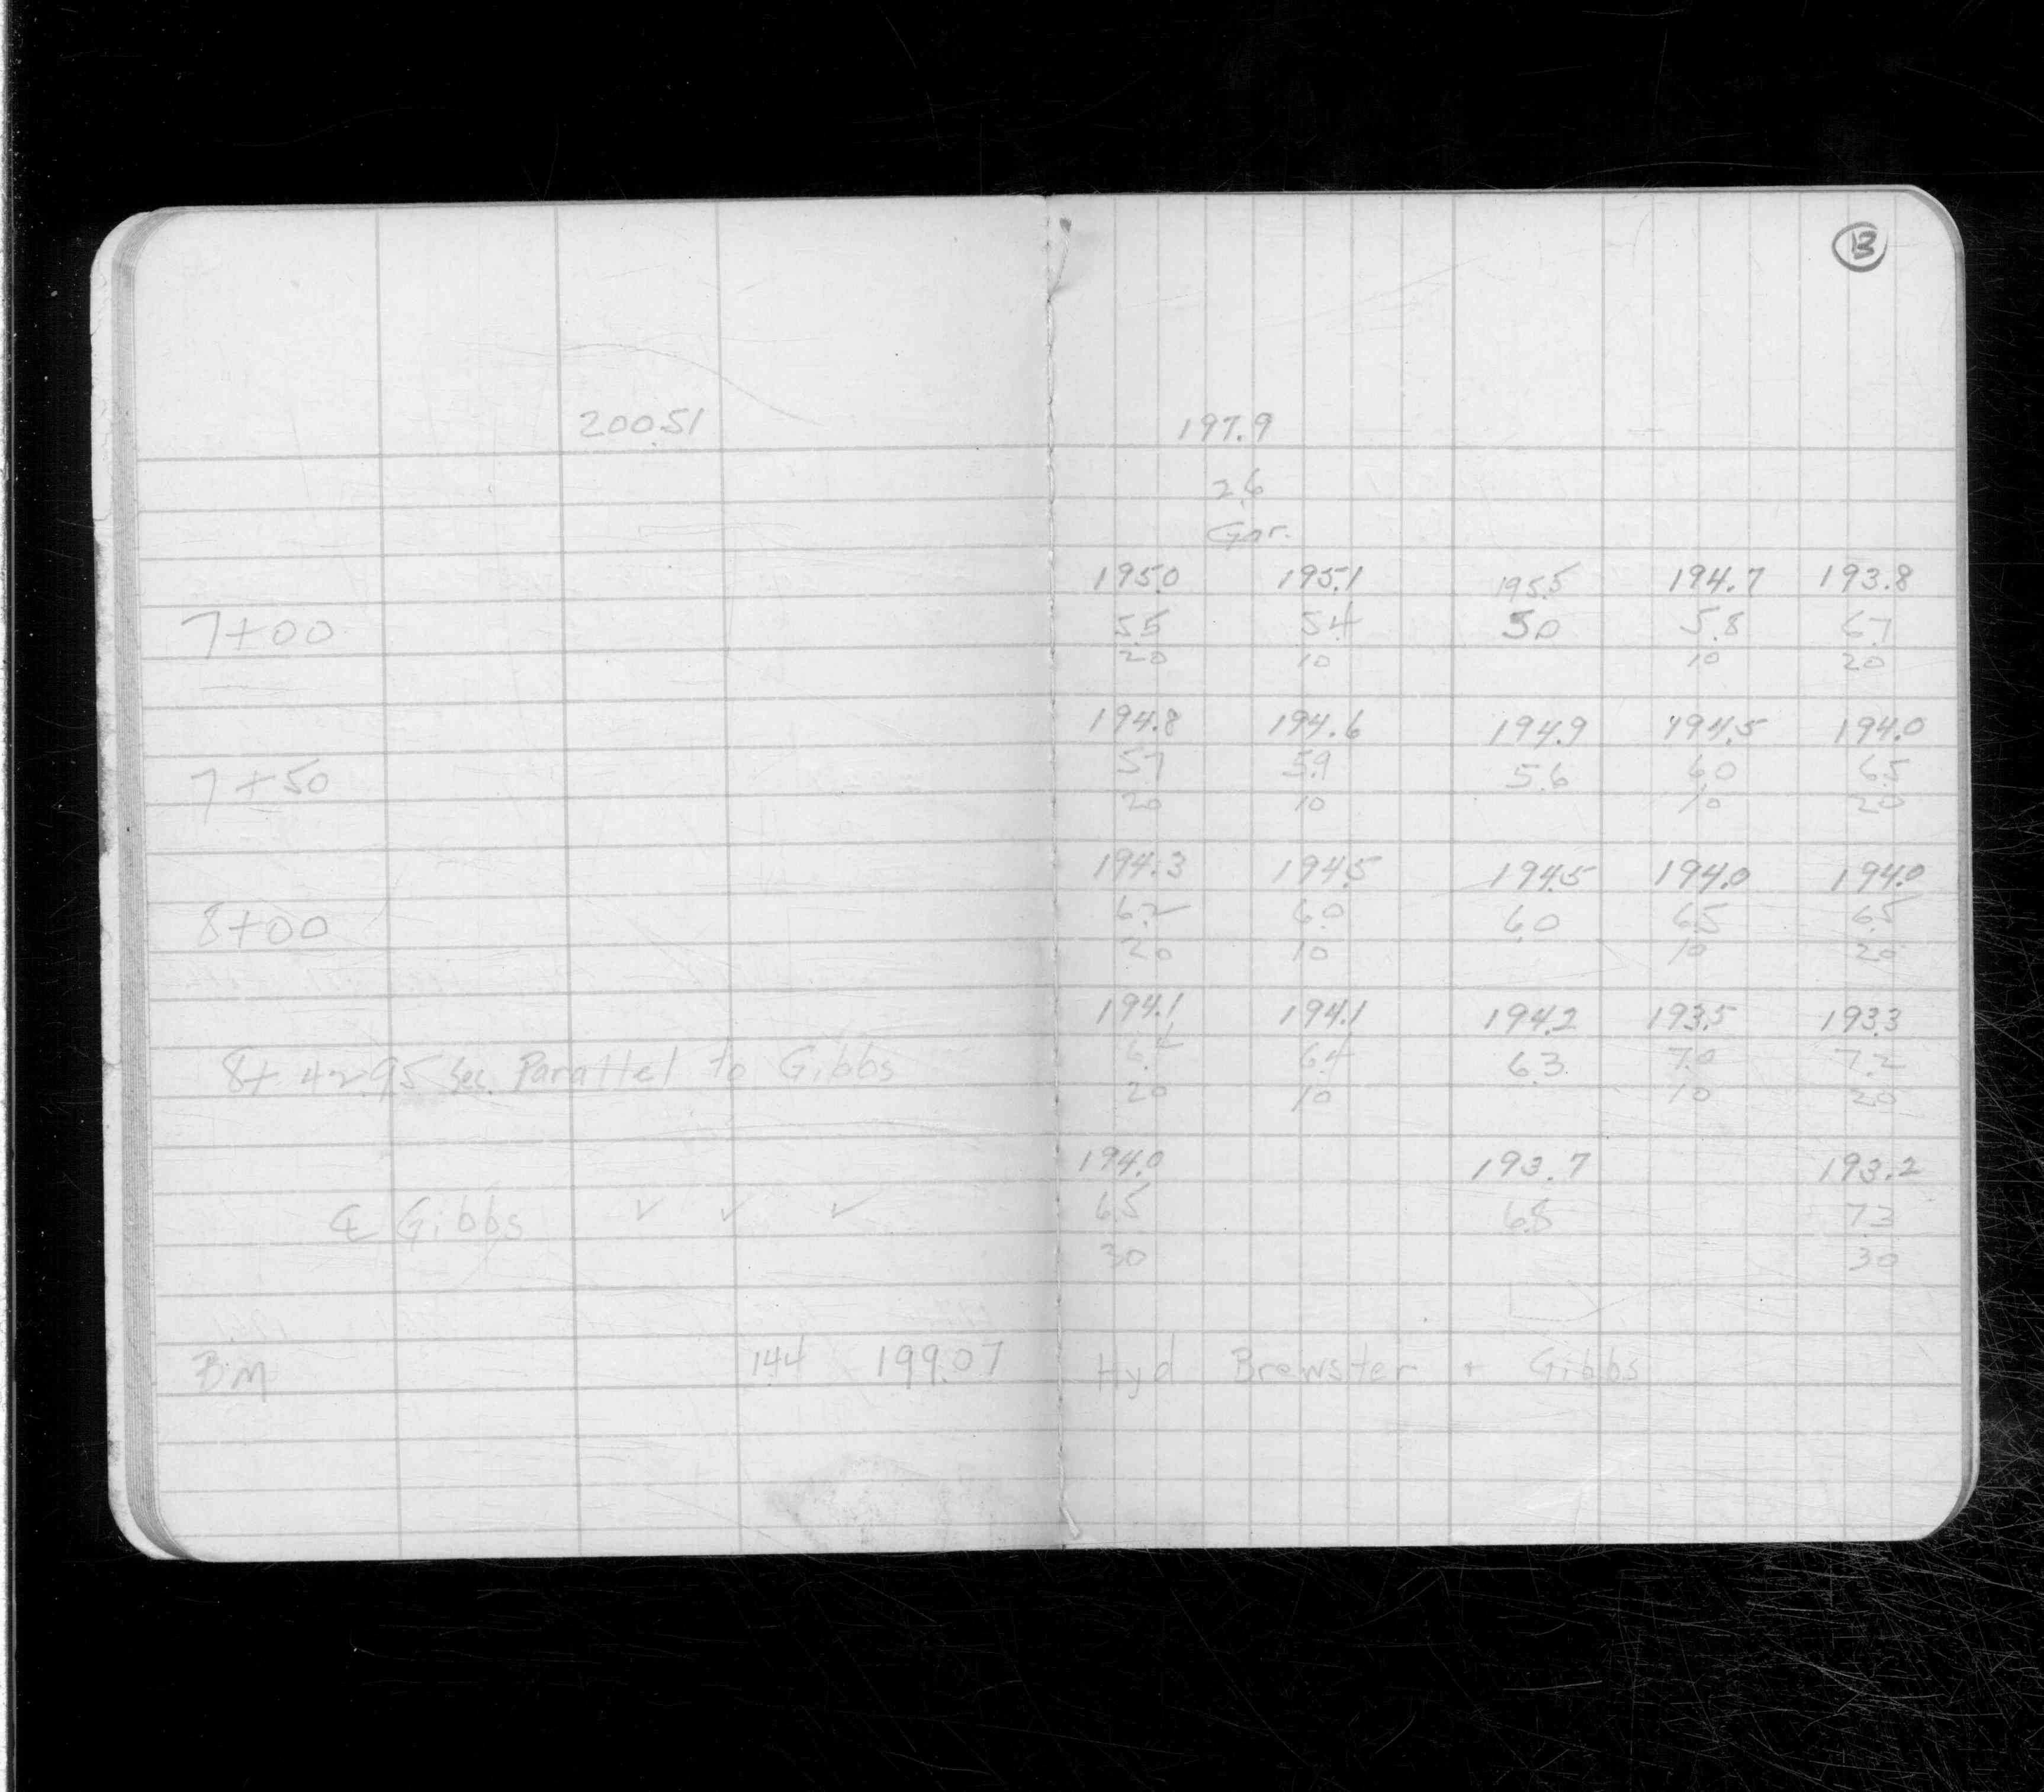 13
200.51 197.9
2.6
Gar.
195.0 195.1 195.5 194.7 193.8
7+00 5.5 5.4 5.0 5.8 6.7
20 10 10 20
194.8 194.6 194.9 194.5 194.0
7+50 5.7 5.9 5.6 6.0 6.5
20 10 10 20
194.3 194.5 194.5 194.0 194.0
8+00 6.2 6.0 6.0 6.5 6.5
20 10 10 20
194.1 194.1 194.2 193.5 193.3
8+42.95 Sec. Parallel to Gibbs 6.4 6.4 6.3 7.0 7.2
20 10 10 20
194.0 193.7 193.2
℄ Gibbs ✓ ✓ ✓ 6.5 6.8 7.3
30 30
B.M 1.44 199.07 Hyd Brewster + Gibbs